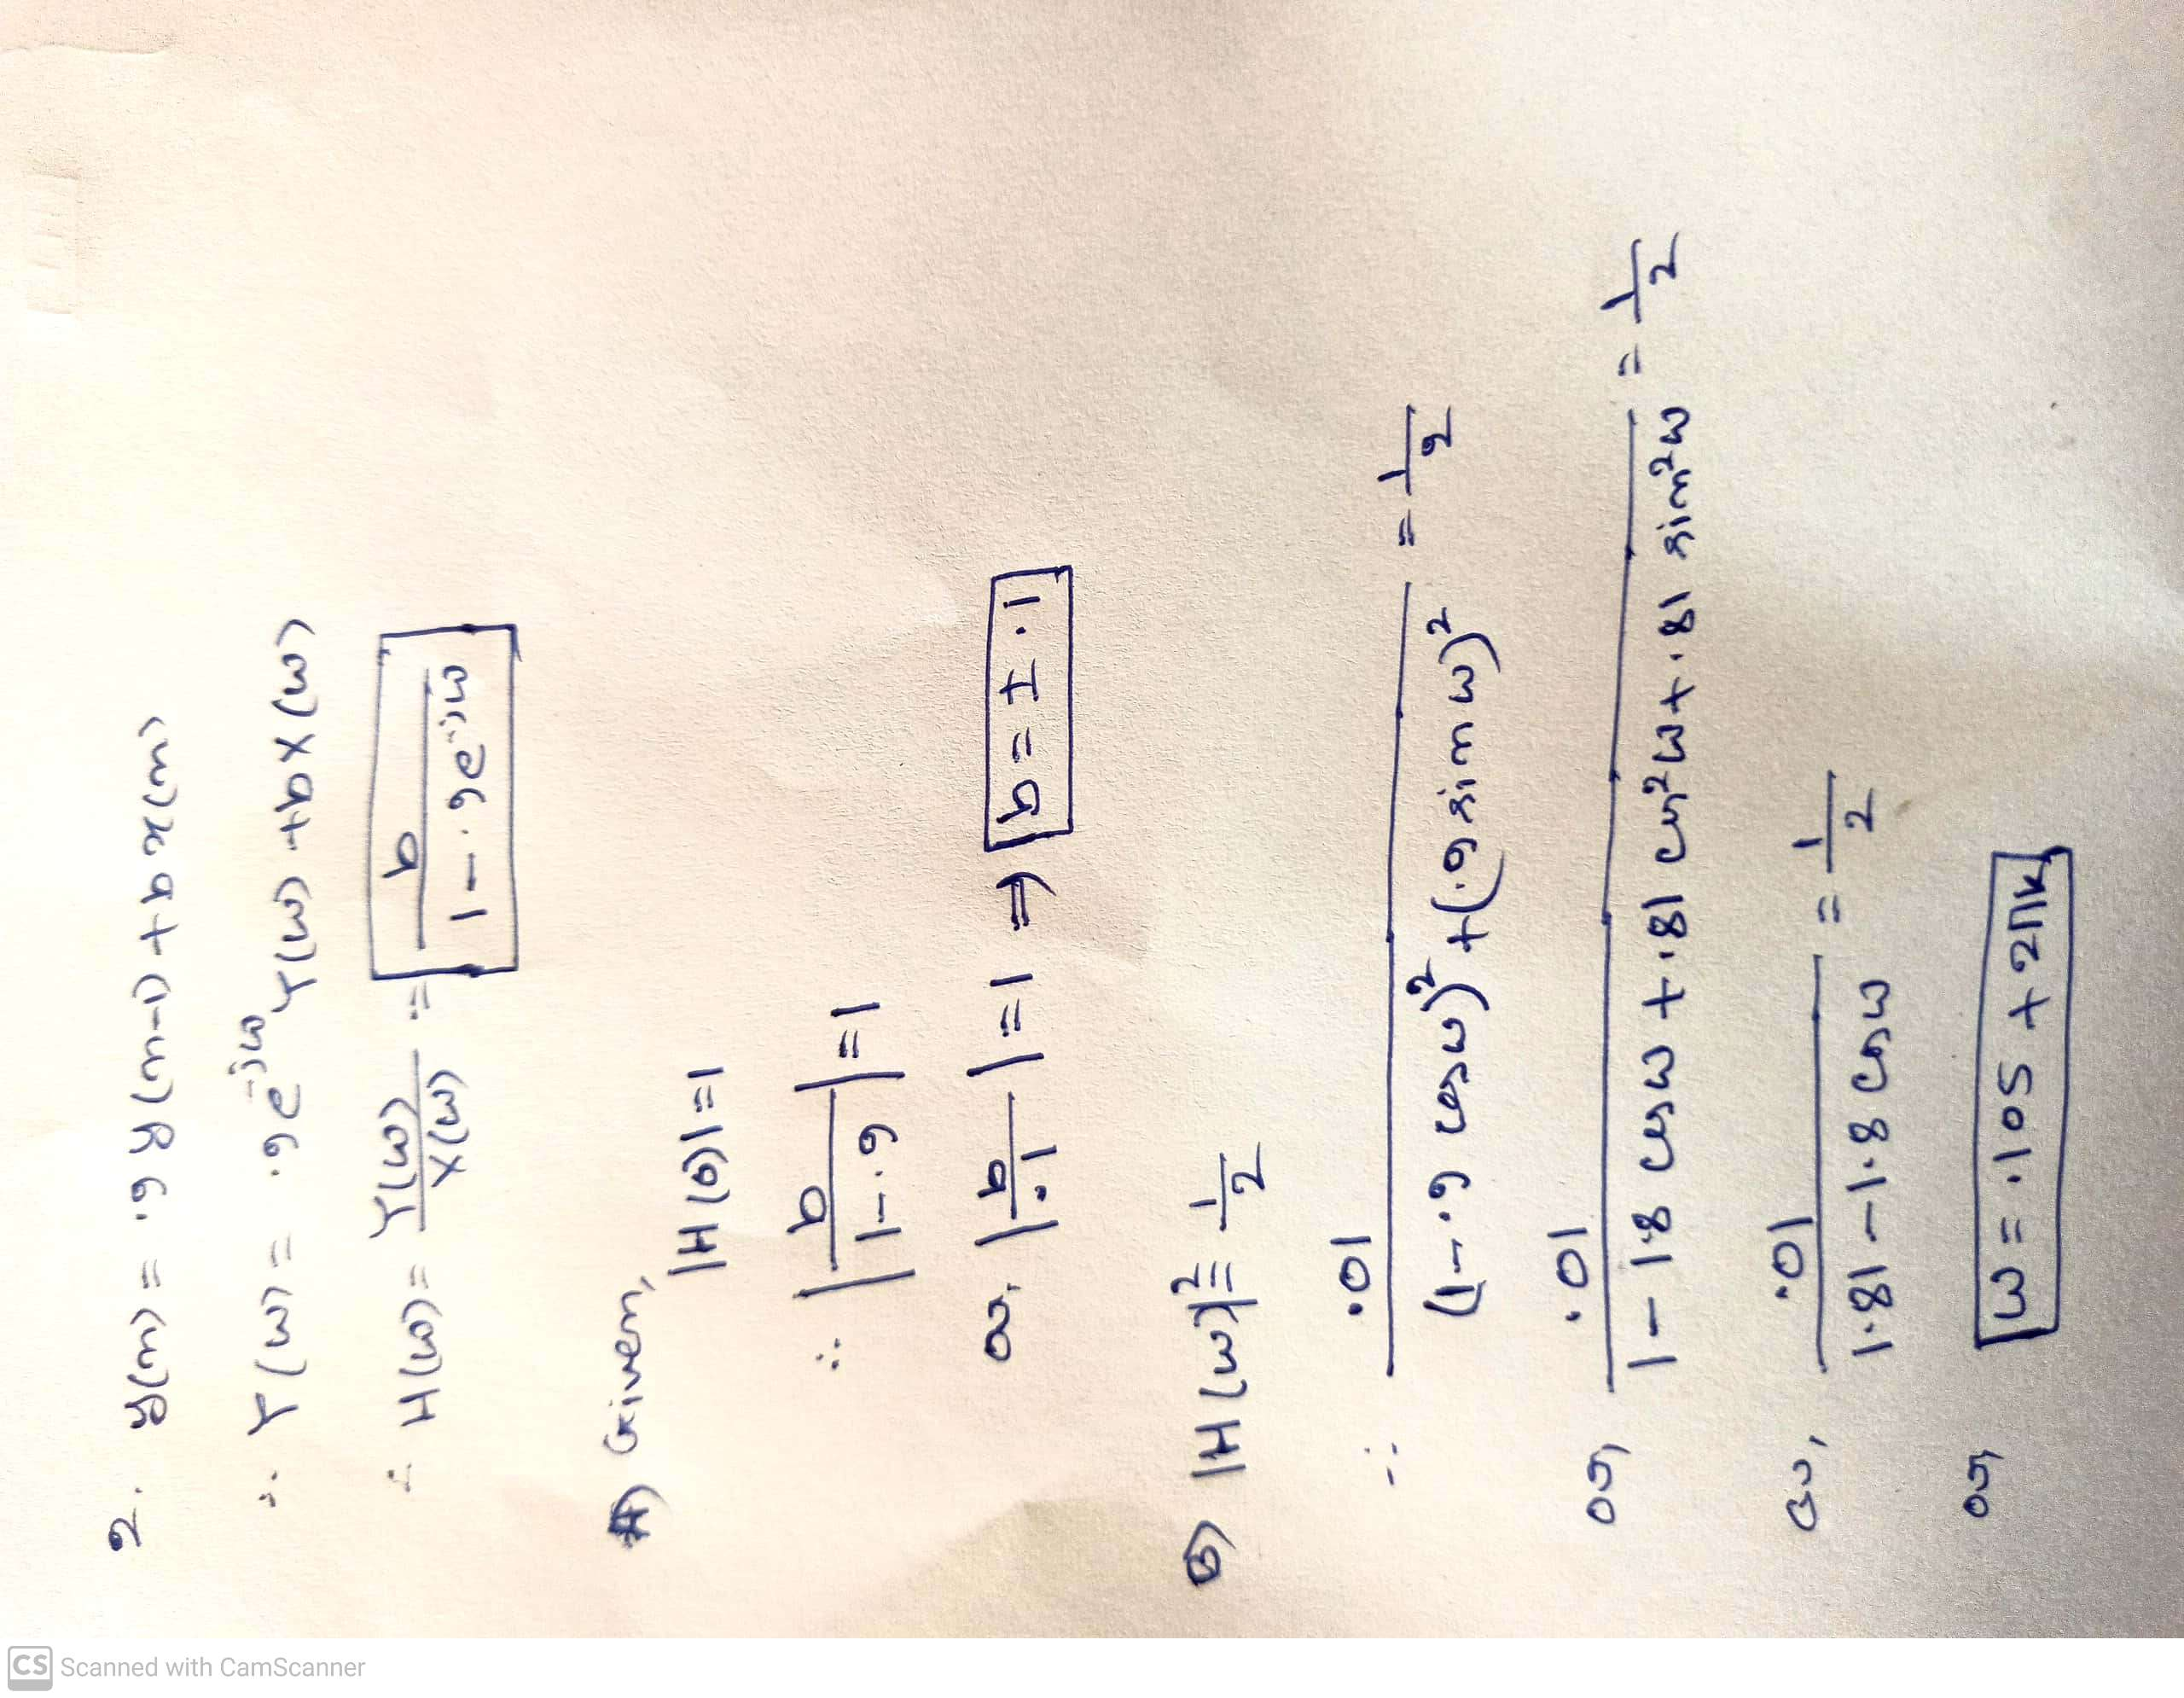 2. y(n) = .9 y(n-1) + b x(n)
∴ Y(ω) = .9e^-jω Y(ω) + bX(ω)
∴ H(ω) = Y(ω)/X(ω) = b/(1-.9e^-jω)
A) Given,
|H(0)| = 1
∴ |b/(1-.9)| = 1
or, |b/.1| = 1 ⇒ b = ± .1
B) |H(ω)|² = 1/2
∴ .01/((1-.9 cosω)² + (.9 sinω)²) = 1/2
or, .01/(1 - 1.8 cosω + .81 cos²ω + .81 sin²ω) = 1/2
or, .01/(1.81 - 1.8 cosω) = 1/2
or, ω = .105 + 2πk
CS Scanned with CamScanner